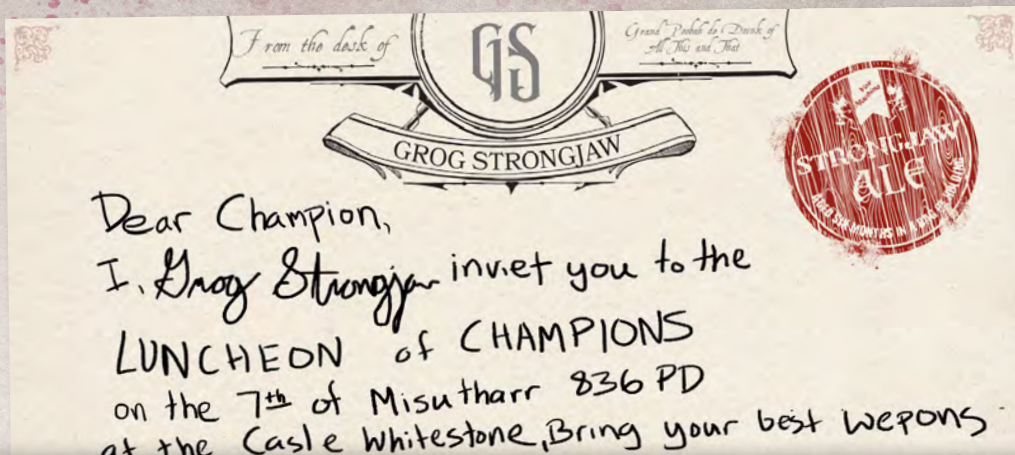 From the desk of
GS
Grand Poobah de Doink of
All This and That
GROG STRONGJAW
Vox
Machina
STRONGJAW
ALE
AGED SIX MONTHS IN A BAG OF HOLDING
Dear Champion,
I, Grog Strongjaw inviet you to the
LUNCHEON of CHAMPIONS
on the 7th of Misutharr 836 PD
at the Casle Whitestone, Bring your best wepons